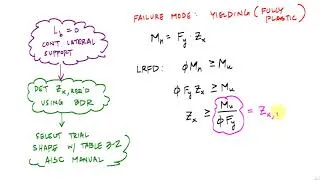 L_b = 0
CONT LATERAL
SUPPORT
DET Z_x,REQ'D
USING BDR
SELECT TRIAL
SHAPE W/ TABLE 3-2
AISC MANUAL
FAILURE MODE: YIELDING (FULLY
PLASTIC)
M_n = F_y · Z_x
LRFD: ϕM_n ≥ M_u
ϕ F_y Z_x ≥ M_u
Z_x ≥ M_u / ϕF_y = Z_x,